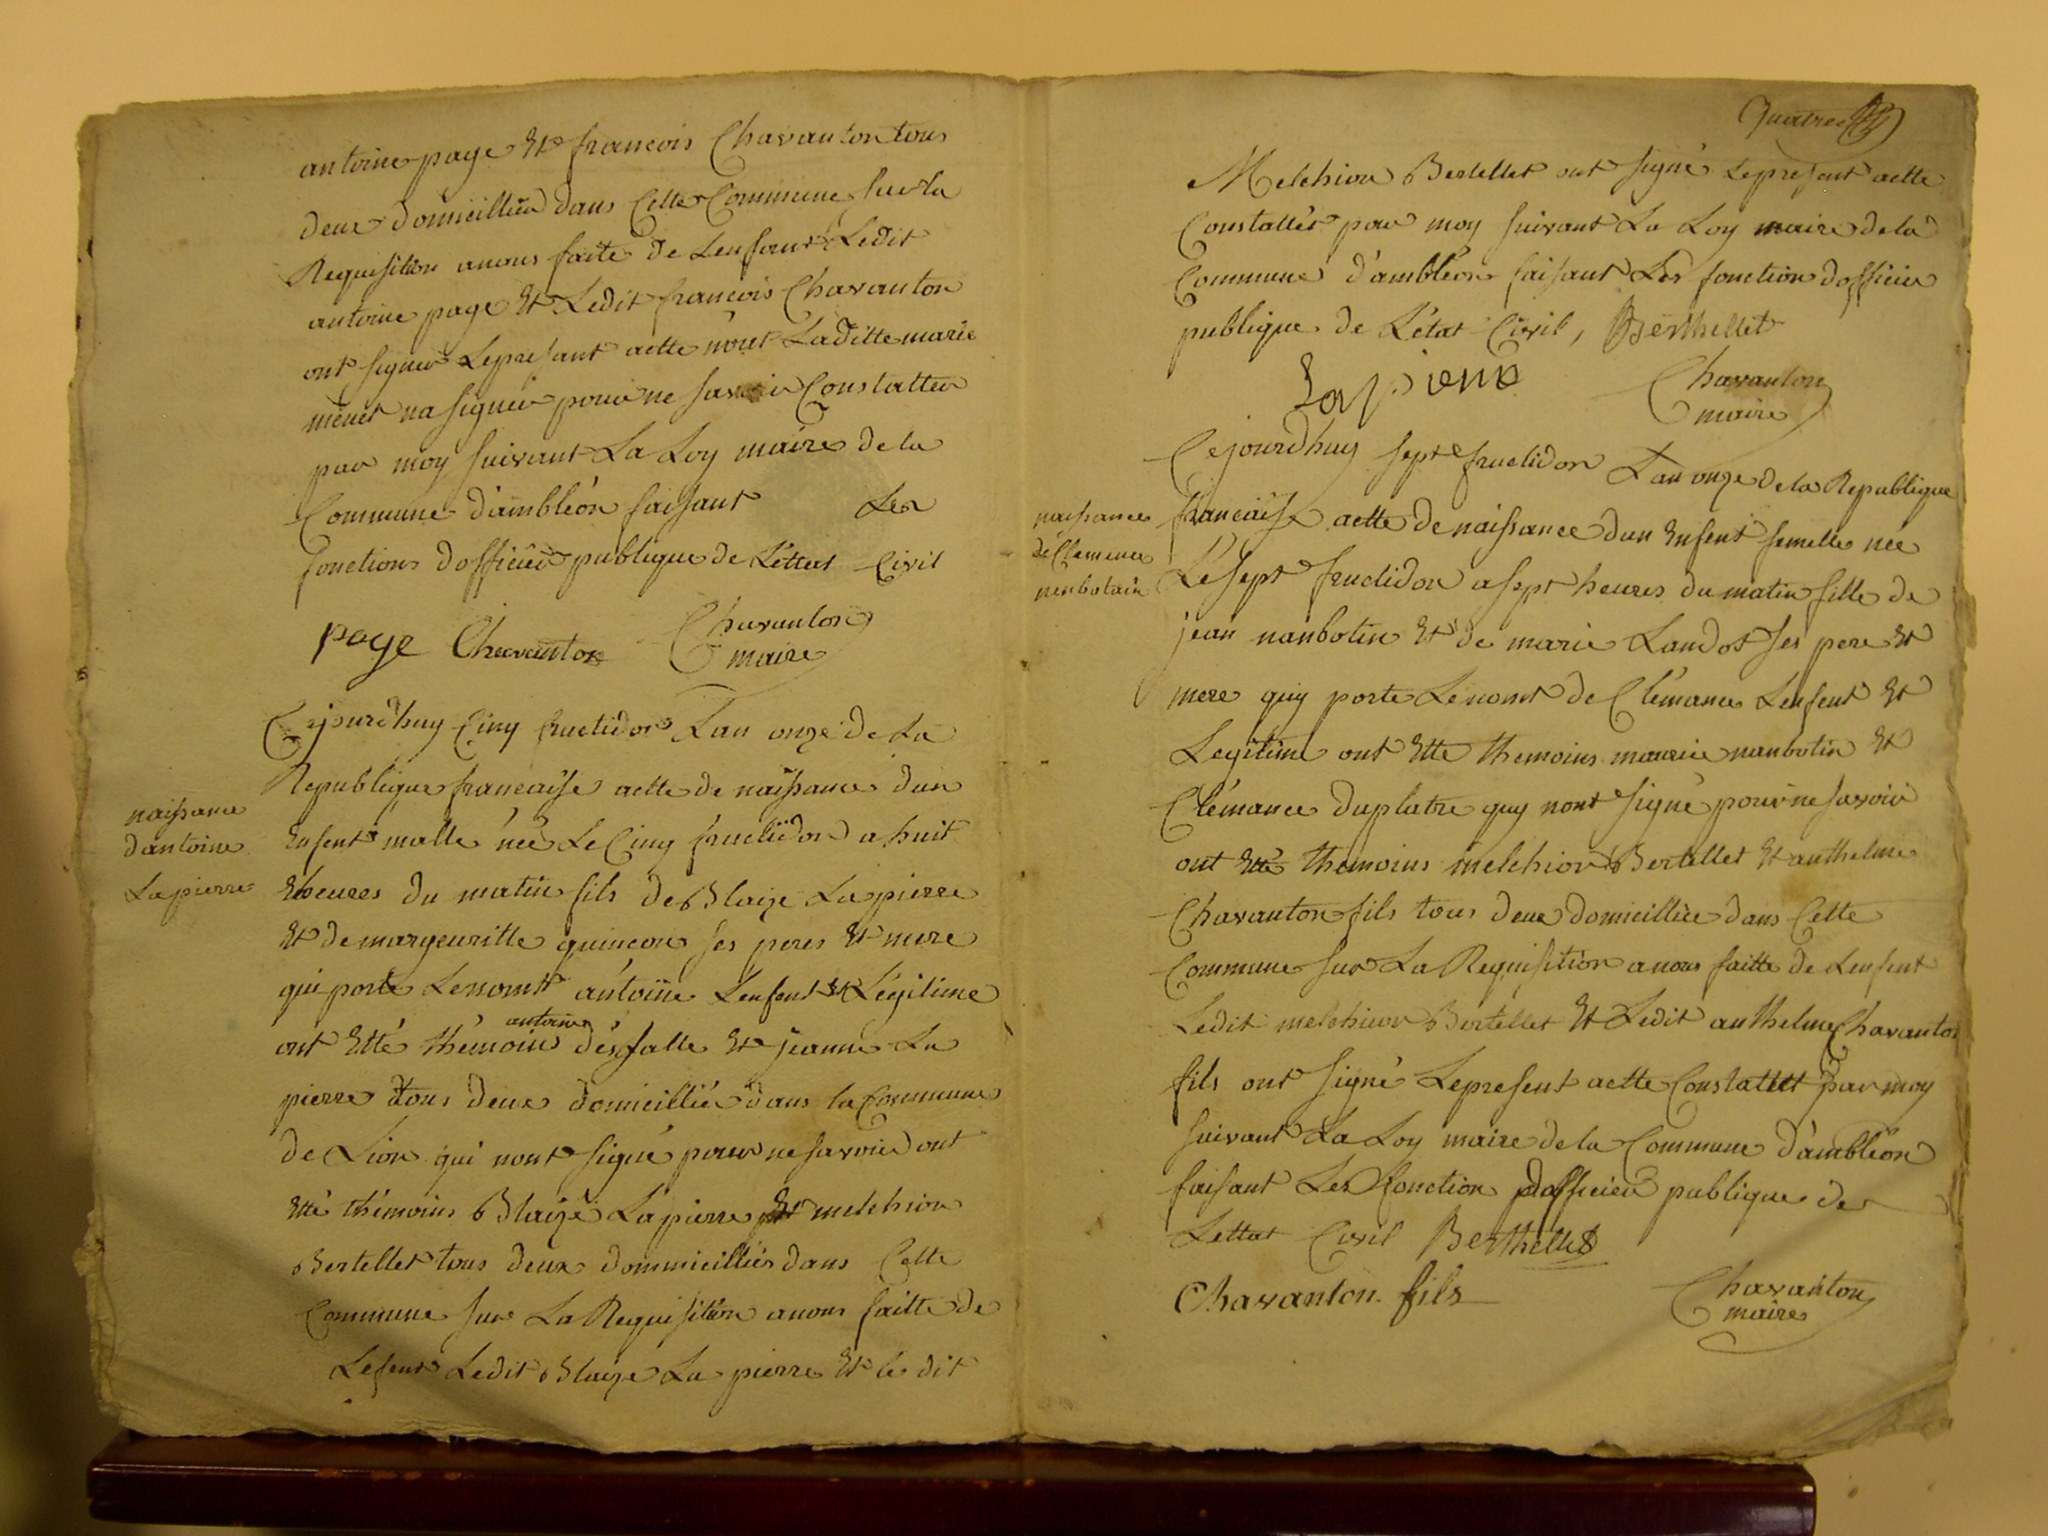 antoine page Et francois Chavanton tous
deux domicillié dans Cette Commune sur la
Requisition anous faite de Lenfant Ledit
antoine page Et Ledit francois Chavanton
ont signer Lepresant actte nont Laditte marie
menet na signér pour ne savoir Constatter
par moy suivant La Loy maire de la
Commune d'ambléon faisant Les
fonctions dofficier publique de Léttat Civil
page Chavanton Chavanton
maire
Cejourdhuy Cinq fructidor Lan onze de La
Republique francaise actte de naissance dun
naissance
dantoine
Lapierre
Enfent malle née Le Cinq fructidor a huit
heures du matin fils de Blaize La pierre
Et de margeuritte quincon ses peres Et mere
qui porte Le nomt antoine Lenfent Et Légitime
antoine
ont Etté thémoins désfalle Et jeanne La
pierre tous deux domicillié dans la Commune
de Lion qui nont signé pour ne savoir ont
Etté thémoins Blaize Lapierre Et melchior
Bertellet tous deux dommicilliés dans Cette
Commune sur La Requisition anous faitte de
Lefent Ledit Blaize La pierre Et le dit
Quatre
Melchior Bertellet ont signé Lepresent actte
Constattér par moy suivant La Loy maire de la
Commune d'ambléon faisant Les fonction dofficier
publique de Létat Civil, Berthellet
Lapiere Chavanton
maire
Cejourdhuy sept fructidor Lan onze de la Republique
naissance
de Clemence
nenbotain
francaise actte de naissance dun Enfent femelle née
Le sept fructidor a sept heures du matin fille de
jean nanbotin Et de marie Landot ses pere Et
mere quy porte Le nomt de Clémance Lenfent Et
Legitime ont Ette themoins maurie nanbotin Et
Clémance duplatre quy nont signé pour ne savoir
ont Etté themoins melchior Bertellet Et anthelme
Chavanton fils tous deux domicillié dans Cette
Commune sur La Requisition anous faitte de Lenfent
Ledit melchior Bertellet Et Ledit anthelme Chavanton
fils ont signé Lepresent actte Constattét par moy
suivant La Loy maire de la Commune d'ambléon
faisant Les fonction dofficier publique de
Lettat Civil Berthellet
Chavanton fils Chavanton
maire